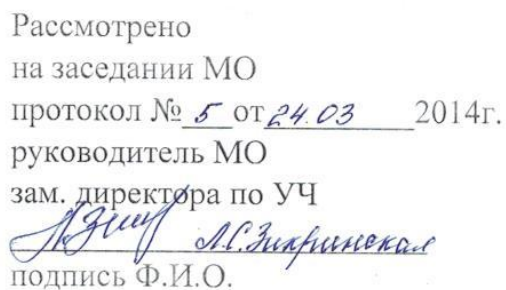 Рассмотрено
на заседании МО
протокол № 5 от 24.03 2014г.
руководитель МО
зам. директора по УЧ
Л.С.Зикринская
подпись Ф.И.О.